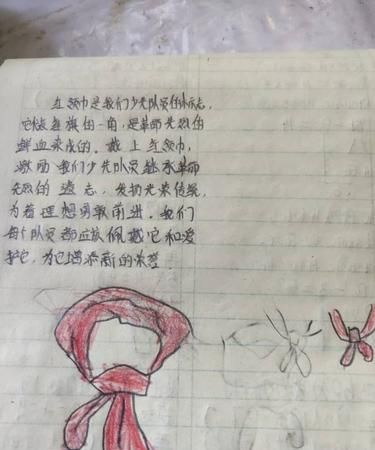 红领巾是我们少先队员的标志,
它像是旗的一角,是革命先烈的
鲜血染成的。戴上红领巾,
激励我们少先队员继承革命
先烈的遗志,发扬光荣传统,
为着理想勇敢前进。我们
每个队员都应该佩戴它和爱
护它,为它增添新的荣誉。